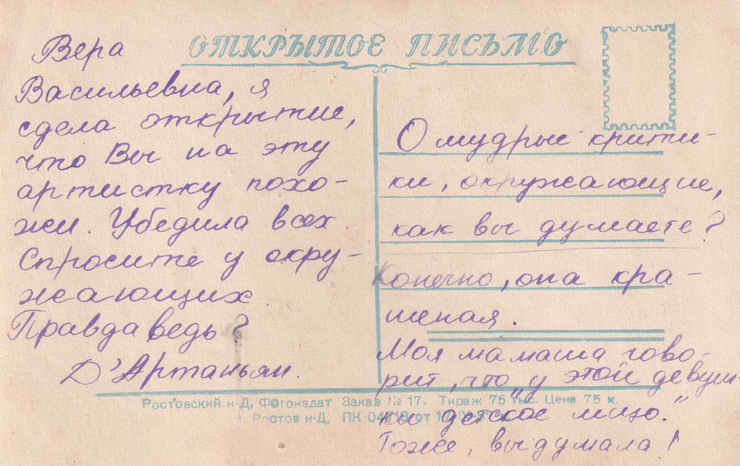 ОТКРЫТОЕ ПИСЬМО
Вера
Васильевна, я
сдела открытие,
что Вы на эту
артистку похо-
жи. Убедила всех.
Спросите у окру-
жающих
Правда ведь?
Д'Артаньян.
О мудрые крити-
ки, окружающие,
как вы думаете?
Конечно, она кра-
шеная.
Моя мамаша гово-
рит, что "у этой девуш-
ки детское лицо."
Тоже, выдумала!
Ростовский н-Д, Фотоиздат Заказ № 17. Тираж 75 тыс. Цена 75 к.
г. Ростов н-Д, ПК 04718 от